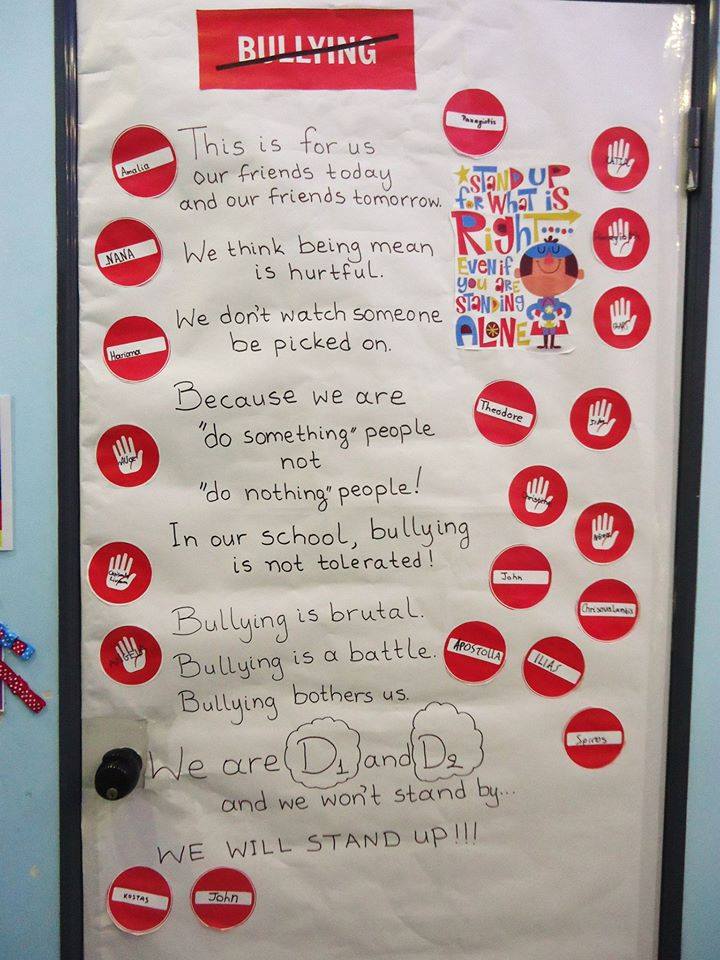 BULLYING
This is for us
our friends today
and our friends tomorrow.
We think being mean
is hurtful.
We don't watch someone
be picked on.
Because we are
"do something" people
not
"do nothing" people!
In our school, bullying
is not tolerated!
Bullying is brutal.
Bullying is a battle.
Bullying bothers us.
We are D1 and D2
and we won't stand by...
WE WILL STAND UP!!!
STAND UP
FOR WHAT IS
RIGHT.....
EVEN if
YOU ARE
STANDING
ALONE
Amalia
NANA
Theodore
John
APOSTOLIA
ILIAS
Spiros
KOSTAS
John